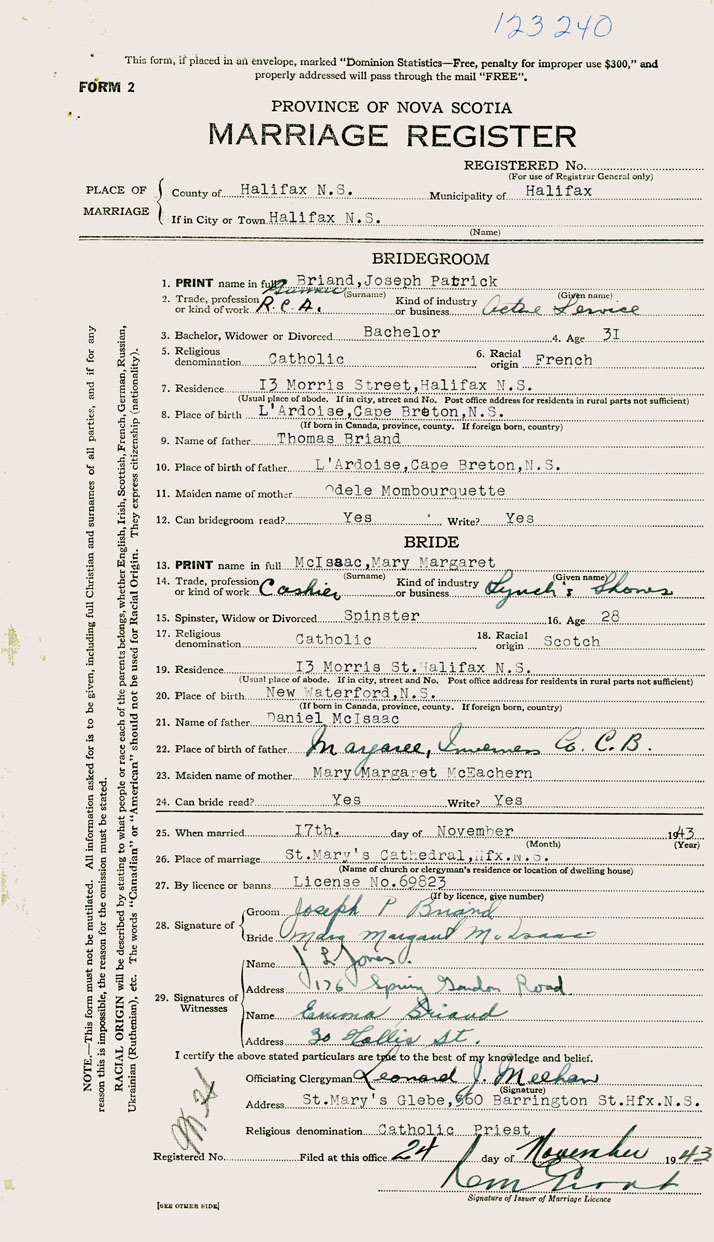 123240
This form, if placed in an envelope, marked "Dominion Statistics—Free, penalty for improper use $300," and
properly addressed will pass through the mail "FREE".
FORM 2
PROVINCE OF NOVA SCOTIA
MARRIAGE REGISTER
REGISTERED No.
(For use of Registrar General only)
PLACE OF MARRIAGE
County of Halifax N.S. Municipality of Halifax
If in City or Town Halifax N.S.
(Name)
BRIDEGROOM
1. PRINT name in full Briand,Joseph Patrick
(Surname) (Given name)
2. Trade, profession or kind of work Gunner R.C.A. Kind of industry or business Active Service
3. Bachelor, Widower or Divorced Bachelor 4. Age 31
5. Religious denomination Catholic 6. Racial origin French
7. Residence 13 Morris Street,Halifax N.S.
(Usual place of abode. If in city, street and No. Post office address for residents in rural parts not sufficient)
8. Place of birth L'Ardoise,Cape Breton,N.S.
(If born in Canada, province, county. If foreign born, country)
9. Name of father Thomas Briand
10. Place of birth of father L'Ardoise,Cape Breton,N.S.
11. Maiden name of mother Odele Mombourquette
12. Can bridegroom read? Yes Write? Yes
BRIDE
13. PRINT name in full McIsaac,Mary Margaret
(Surname) (Given name)
14. Trade, profession or kind of work Cashier Kind of industry or business Lynch's Shows
15. Spinster, Widow or Divorced Spinster 16. Age 28
17. Religious denomination Catholic 18. Racial origin Scotch
19. Residence 13 Morris St.Halifax N.S.
(Usual place of abode. If in city, street and No. Post office address for residents in rural parts not sufficient)
20. Place of birth New Waterford,N.S.
(If born in Canada, province, county. If foreign born, country)
21. Name of father Daniel McIsaac
22. Place of birth of father Margaree, Inverness Co. C.B.
23. Maiden name of mother Mary Margaret McEachern
24. Can bride read? Yes Write? Yes
25. When married 17th. day of November 1943
(Month) (Year)
26. Place of marriage St.Mary's Cathedral,Hfx.N.S.
(Name of church or clergyman's residence or location of dwelling house)
27. By licence or banns License No.69823
(If by licence, give number)
28. Signature of
Groom Joseph P Briand
Bride Mary Margaret McIsaac
29. Signatures of Witnesses
Name J L Jones.
Address 176 Spring Garden Road
Name Emma Briand
Address 30 Hollis St.
I certify the above stated particulars are true to the best of my knowledge and belief.
Officiating Clergyman Leonard J. Meehan
(Signature)
Address St.Mary's Glebe,960 Barrington St.Hfx.N.S.
Religious denomination Catholic Priest
Registered No. Filed at this office 24 day of November 1943
Signature of Issuer of Marriage Licence
[SEE OTHER SIDE]
NOTE.—This form must not be mutilated. All information asked for is to be given, including full Christian and surnames of all parties, and if for any
reason this is impossible, the reason for the omission must be stated.
RACIAL ORIGIN will be described by stating to what people or race each of the parents belongs, whether English, Irish, Scottish, French, German, Russian,
Ukrainian (Ruthenian), etc. The words "Canadian" or "American" should not be used for Racial Origin. They express citizenship (nationality).